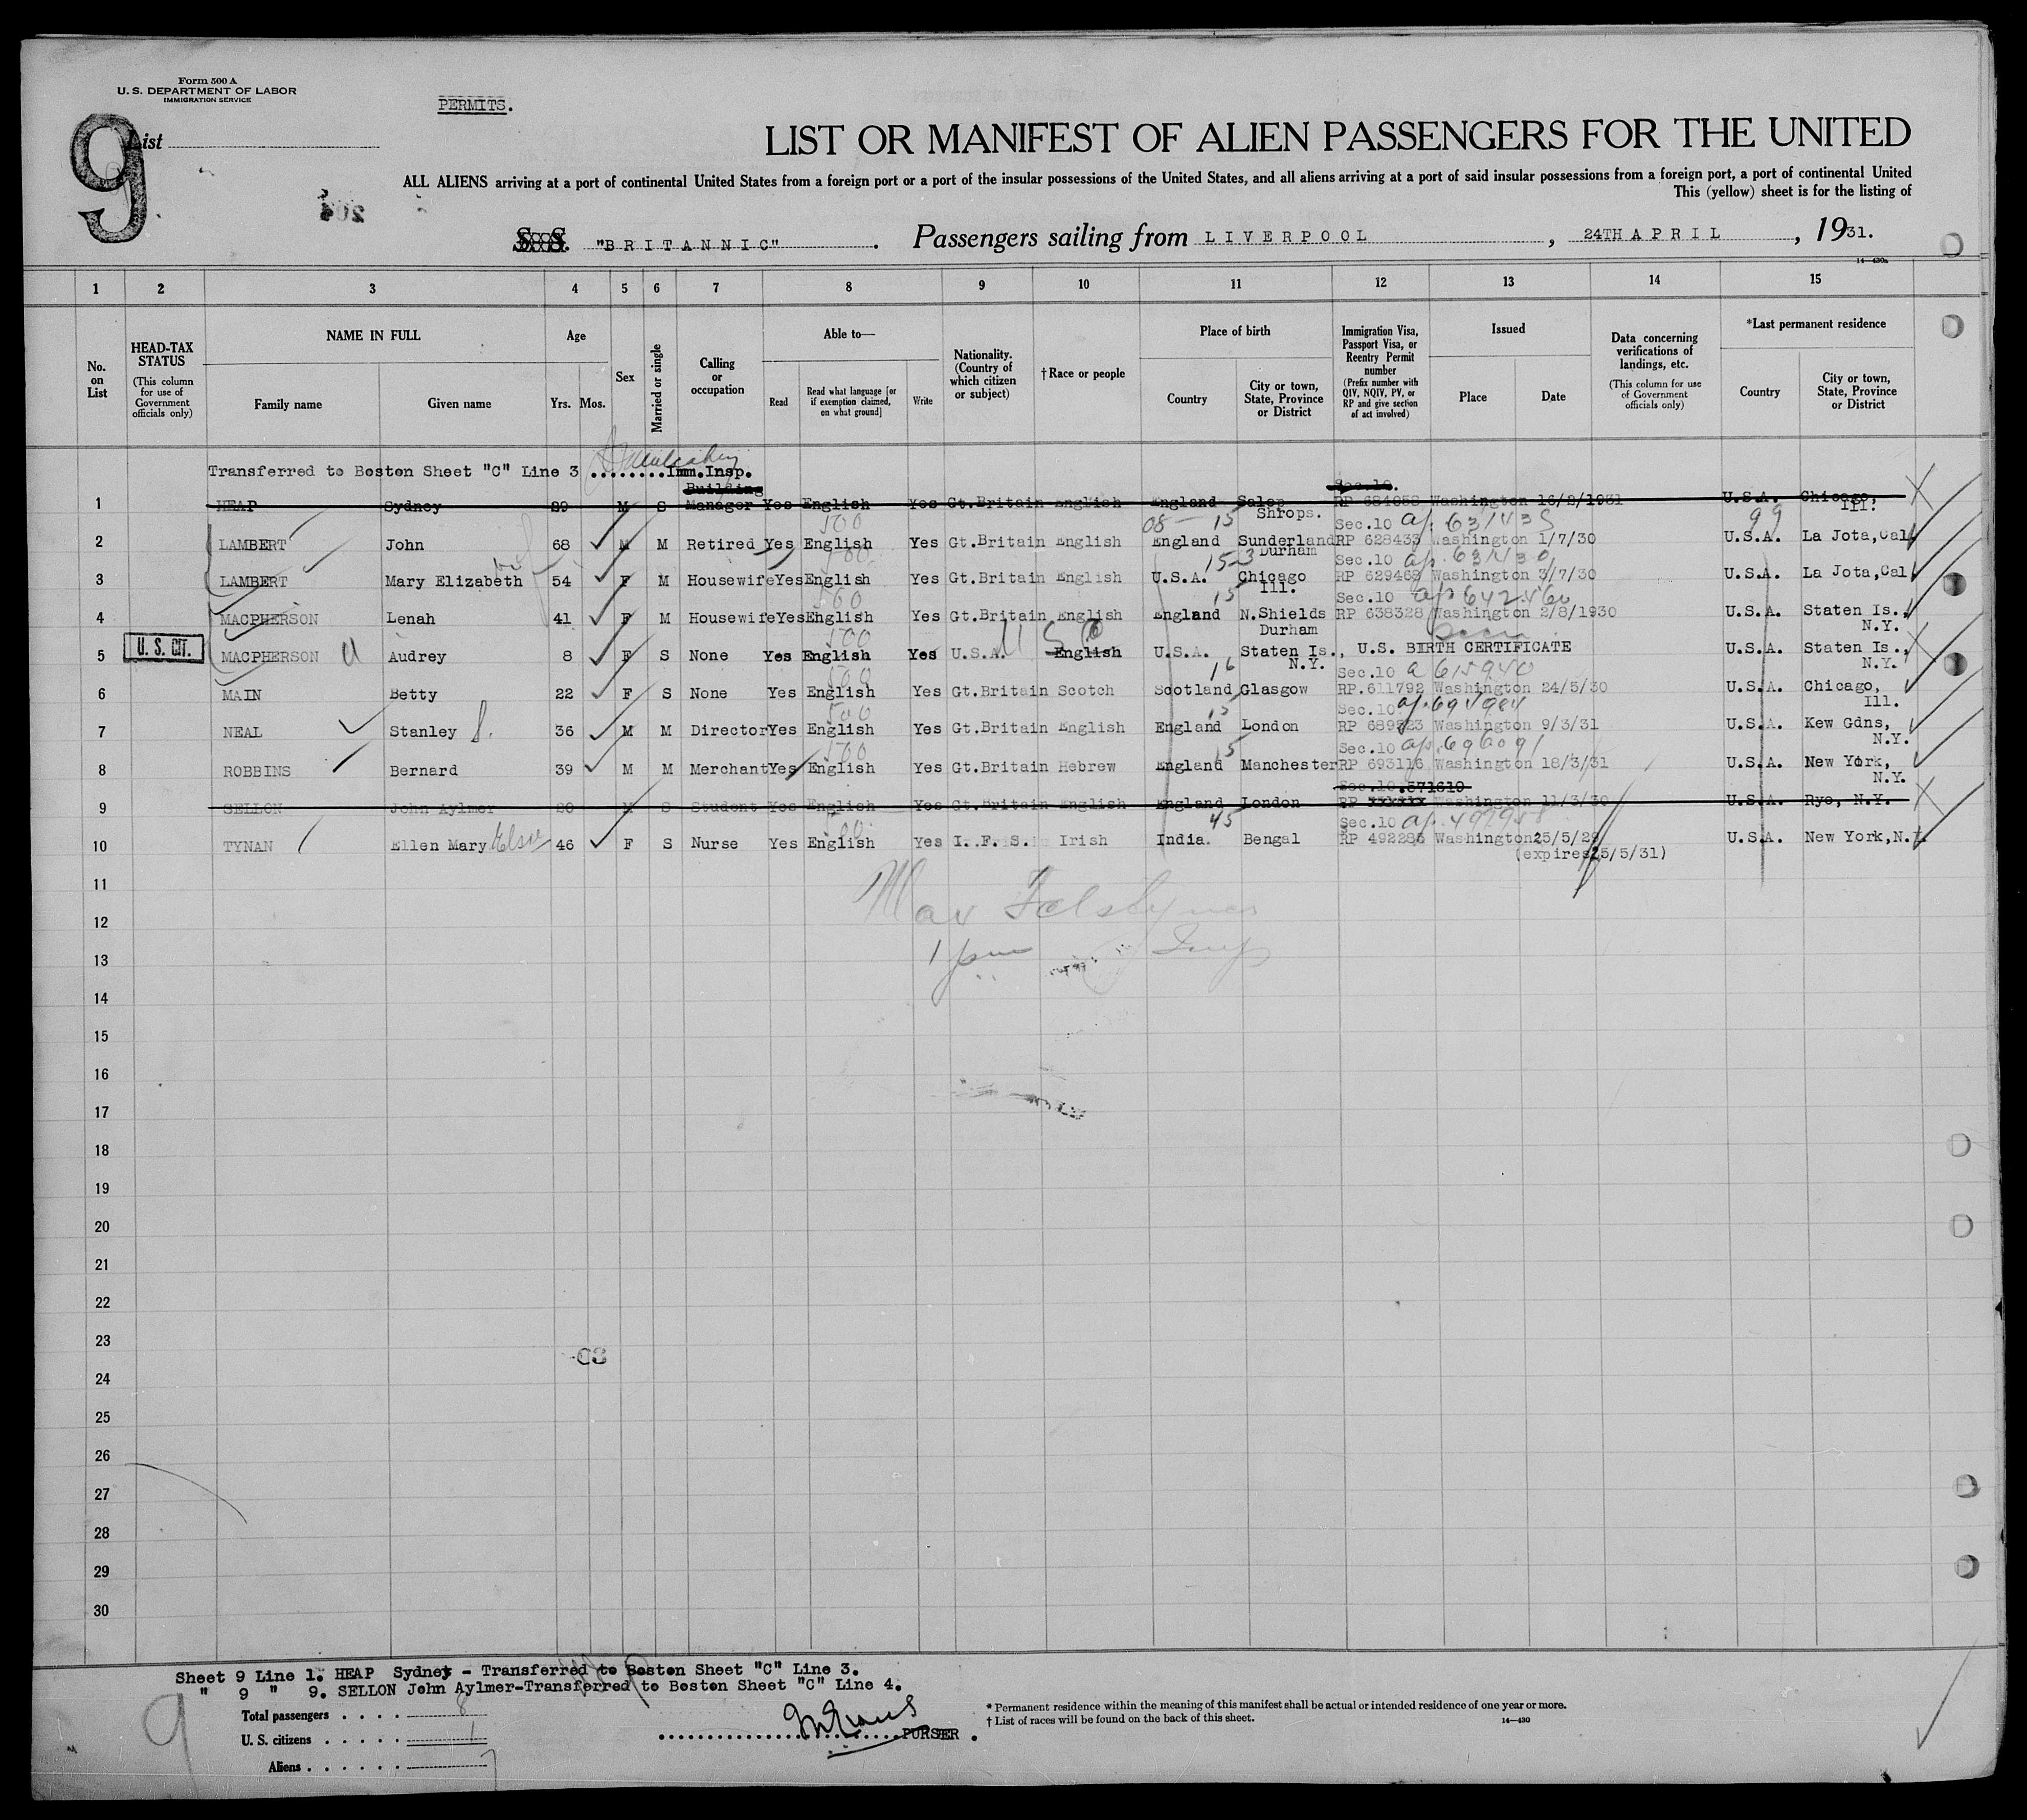 Form 500 A
U. S. DEPARTMENT OF LABOR
IMMIGRATION SERVICE
PERMITS.
9
List
LIST OR MANIFEST OF ALIEN PASSENGERS FOR THE UNITED
ALL ALIENS arriving at a port of continental United States from a foreign port or a port of the insular possessions of the United States, and all aliens arriving at a port of said insular possessions from a foreign port, a port of continental United
This (yellow) sheet is for the listing of
S. S. "BRITANNIC". Passengers sailing from LIVERPOOL, 24TH APRIL, 1931.
14—430a
1 2 3 4 5 6 7 8 9 10 11 12 13 14 15
No. on List
HEAD-TAX STATUS (This column for use of Government officials only)
NAME IN FULL
Family name Given name
Age
Yrs. Mos.
Sex
Married or single
Calling or occupation
Able to—
Read Read what language [or if exemption claimed, on what ground] Write
Nationality. (Country of which citizen or subject)
† Race or people
Place of birth
Country City or town, State, Province or District
Immigration Visa, Passport Visa, or Reentry Permit number (Prefix number with QIV, NQIV, PV, or RP and give section of act involved)
Issued
Place Date
Data concerning verifications of landings, etc. (This column for use of Government officials only)
*Last permanent residence
Country City or town, State, Province or District
Transferred to Boston Sheet "C" Line 3 ........Imm.Insp.
Building Sec.10.
1 HEAP Sydney 29 M S Manager Yes English Yes Gt.Britain English England Salop RP 684058 Washington 16/2/1931 U.S.A. Chicago,
Shrops. Ill.
500 08 — 15 Sec.10 ap. 631435 99
2 LAMBERT John 68 M M Retired Yes English Yes Gt.Britain English England Sunderland RP 628433 Washington 1/7/30 U.S.A. La Jota,Cal
Durham
Sec.10
3 LAMBERT Mary Elizabeth 54 F M Housewife Yes English Yes Gt.Britain English U.S.A. Chicago RP 629468 Washington 3/7/30 U.S.A. La Jota,Cal
Ill.
500 15 Sec.10 ap 642460
4 MACPHERSON Lenah 41 F M Housewife Yes English Yes Gt.Britain English England N.Shields RP 638328 Washington 2/8/1930 U.S.A. Staten Is.,
Durham N.Y.
500
5 U. S. CIT. MACPHERSON Audrey 8 F S None Yes English Yes U.S.A. English U.S.A. Staten Is., U.S. BIRTH CERTIFICATE U.S.A. Staten Is.,
N.Y. N.Y.
500 16 Sec.10 a 615940
6 MAIN Betty 22 F S None Yes English Yes Gt.Britain Scotch Scotland Glasgow RP.611792 Washington 24/5/30 U.S.A. Chicago,
Ill.
500 15 Sec.10 ap.694984
7 NEAL Stanley S. 36 M M Director Yes English Yes Gt.Britain English England London RP 689823 Washington 9/3/31 U.S.A. Kew Gdns,
N.Y.
500 15 Sec.10 ap.696091
8 ROBBINS Bernard 39 M M Merchant Yes English Yes Gt.Britain Hebrew England Manchester RP 693116 Washington 18/3/31 U.S.A. New York,
N.Y.
Sec.10.571610
9 SELLON John Aylmer 20 M S Student Yes English Yes Gt.Britain English England London RP xxxxxx Washington 11/3/30 U.S.A. Rye, N.Y.
500 45 Sec.10 ap.
10 TYNAN Ellen Mary Elsie 46 F S Nurse Yes English Yes I. F. S. Irish India. Bengal RP 492286 Washington 25/5/29 U.S.A. New York,N.Y.
(expires 25/5/31)
11
12
13
14
15
16
17
18
19
20
21
22
23
24
25
26
27
28
29
30
Sheet 9 Line 1. HEAP Sydney - Transferred to Boston Sheet "C" Line 3.
" 9 " 9. SELLON John Aylmer-Transferred to Boston Sheet "C" Line 4.
9
Total passengers . . . . 8
U. S. citizens . . . . . 1
Aliens . . . . . . 7
PURSER .
* Permanent residence within the meaning of this manifest shall be actual or intended residence of one year or more.
† List of races will be found on the back of this sheet.
14—430